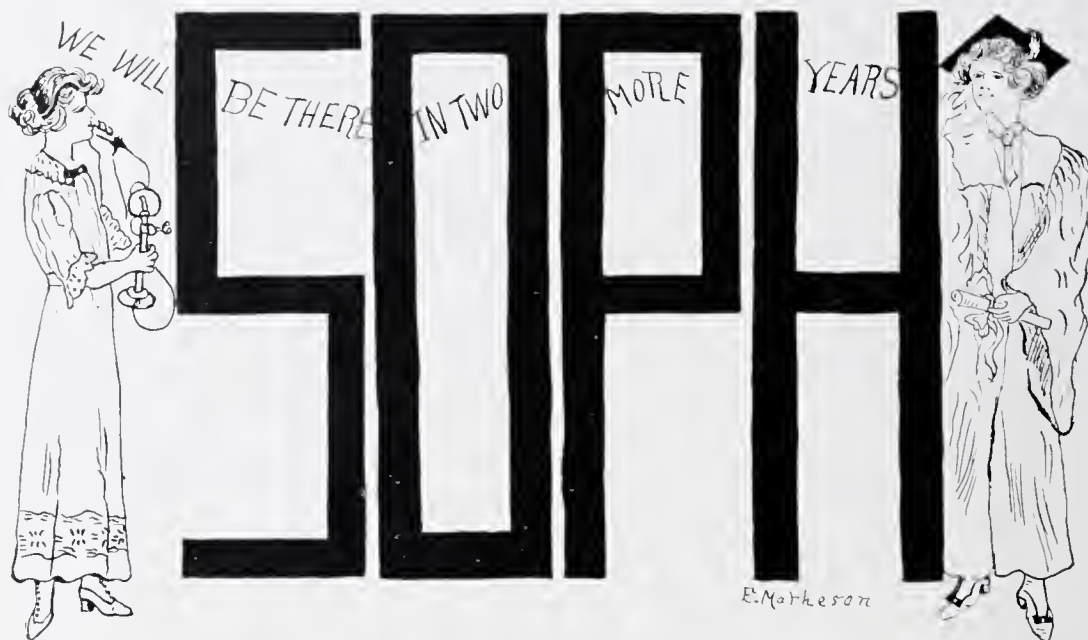 WE WILL BE THERE IN TWO MORE YEARS
SOPH
E. Matheson